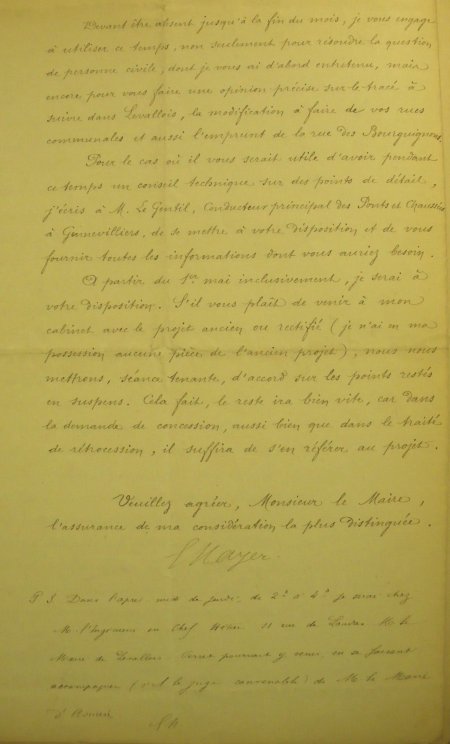 Devant être absent jusqu'à la fin du mois, je vous engage
à utiliser ce temps, non seulement pour résoudre la question
de personne civile, dont je vous ai d'abord entretenu, mais
encore pour vous faire une opinion précise sur le tracé à
suivre dans Levallois, la modification à faire de vos rues
communales et aussi l'emprunt de la rue des Bourguignons.
Pour le cas où il vous serait utile d'avoir pendant
ce temps un conseil technique sur des points de détail,
j'écris à M. Le Gentil, Conducteur principal des Ponts et Chaussées
à Gennevilliers, de se mettre à votre disposition et de vous
fournir toutes les informations dont vous auriez besoin.
A partir du 1er mai inclusivement, je serai à
votre disposition. S'il vous plaît de venir à mon
cabinet avec le projet ancien ou rectifié (je n'ai en ma
possession aucune pièce de l'ancien projet), nous nous
mettrons, séance tenante, d'accord sur les points restés
en suspens. Cela fait, le reste ira bien vite, car dans
la demande de concession, aussi bien que dans le traité
de rétrocession, il suffira de s'en référer au projet.
Veuillez agréer, Monsieur le Maire,
l'assurance de ma considération la plus distinguée.
P S. Dans l'après midi de jeudi, de 2h à 4h je serai chez
M. l'Ingénieur en Chef rue de Londres M. le
Maire de Levallois Perret pourrait y venir en se faisant
accompagner (s'il le juge convenable) de M. le Maire